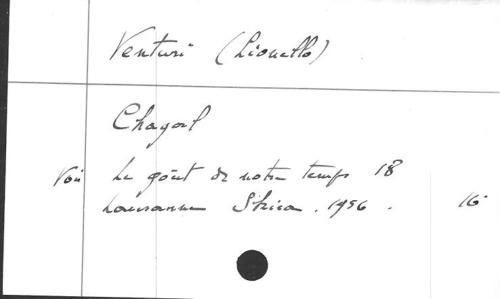 Venturi (Lionello)
Chagall
Voir Le goût de notre temps 18
Lausanne Skira. 1956. 16